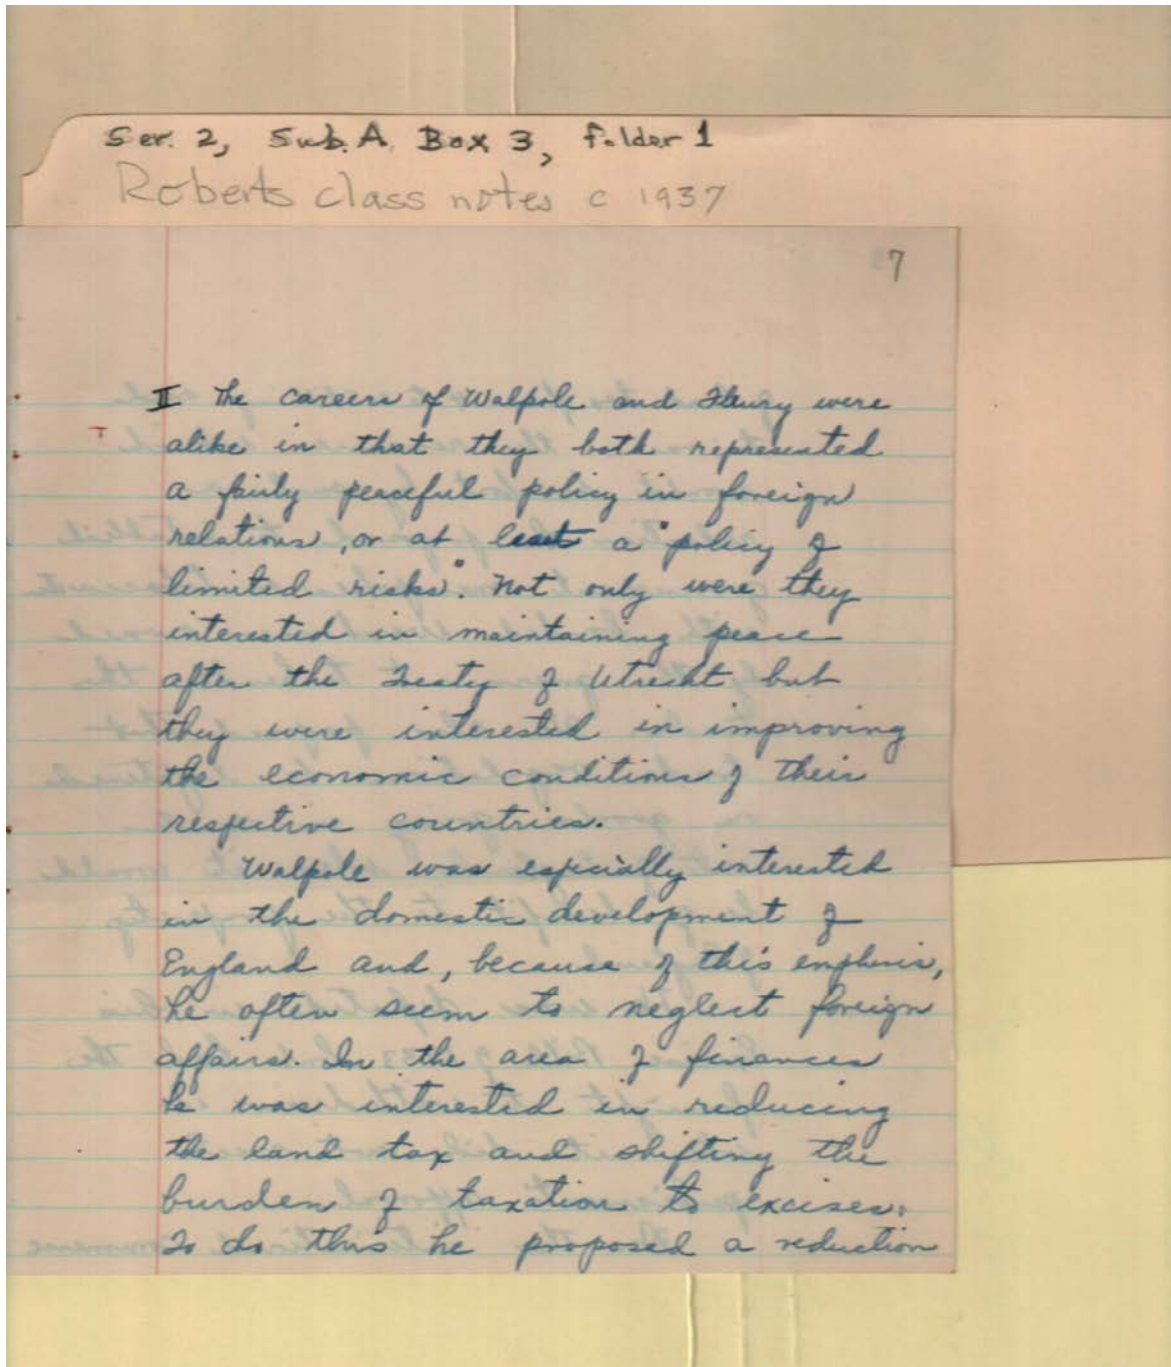 Ser. 2, Sub. A. Box 3, folder 1
Roberts class notes c 1937
7
II The careers of Walpole and Fleury were
alike in that they both represented
a fairly peaceful policy in foreign
relations, or at least a "policy of
limited risks". Not only were they
interested in maintaining peace
after the Treaty of Utrecht but
they were interested in improving
the economic conditions of their
respective countries.
Walpole was especially interested
in the domestic development of
England and, because of this emphasis,
he often seem to neglect foreign
affairs. In the area of finances
he was interested in reducing
the land tax and shifting the
burden of taxation to excises.
To do this he proposed a reduction